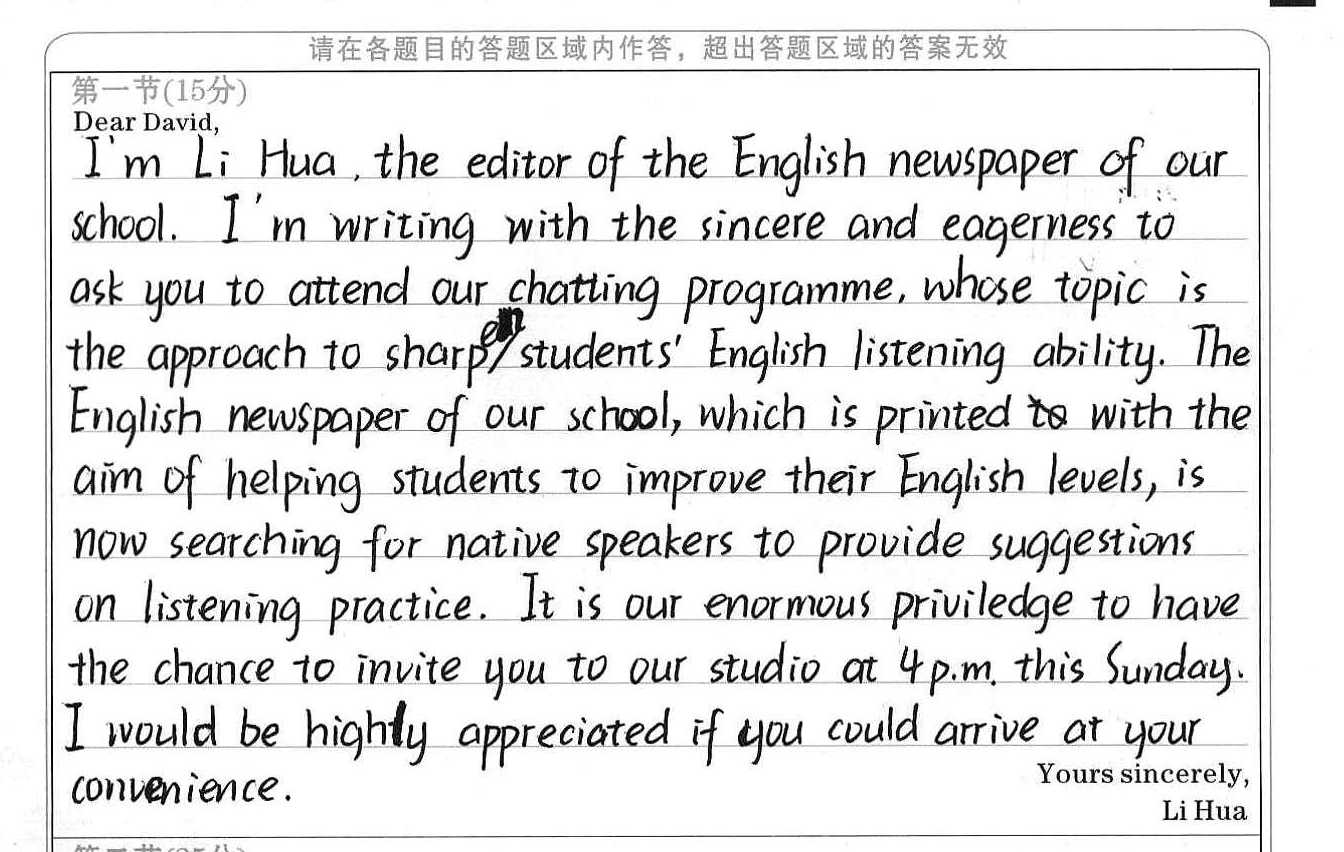 请在各题目的答题区域内作答，超出答题区域的答案无效
第一节(15分)
Dear David,
I'm Li Hua, the editor of the English newspaper of our
school. I'm writing with the sincere and eagerness to
ask you to attend our chatting programme, whose topic is
the approach to sharpen students' English listening ability. The
English newspaper of our school, which is printed with the
aim of helping students to improve their English levels, is
now searching for native speakers to provide suggestions
on listening practice. It is our enormous priviledge to have
the chance to invite you to our studio at 4 p.m. this Sunday.
I would be highly appreciated if you could arrive at your
convenience.
Yours sincerely,
Li Hua